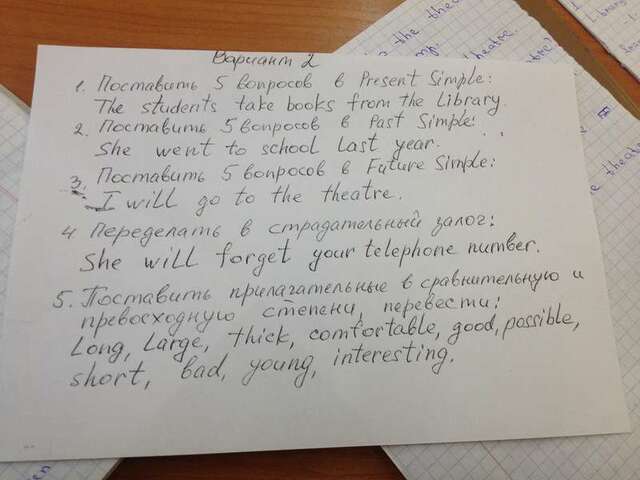 Вариант 2
1. Поставить 5 вопросов в Present Simple:
The students take books from the Library.
2. Поставить 5 вопросов в Past Simple:
She went to school last year.
3. Поставить 5 вопросов в Future Simple:
I will go to the theatre.
4. Переделать в страдательный залог:
She will forget your telephone number.
5. Поставить прилагательные в сравнительную и
превосходную степени, перевести:
Long, large, thick, comfortable, good, possible,
short, bad, young, interesting.
the theatre
theatre